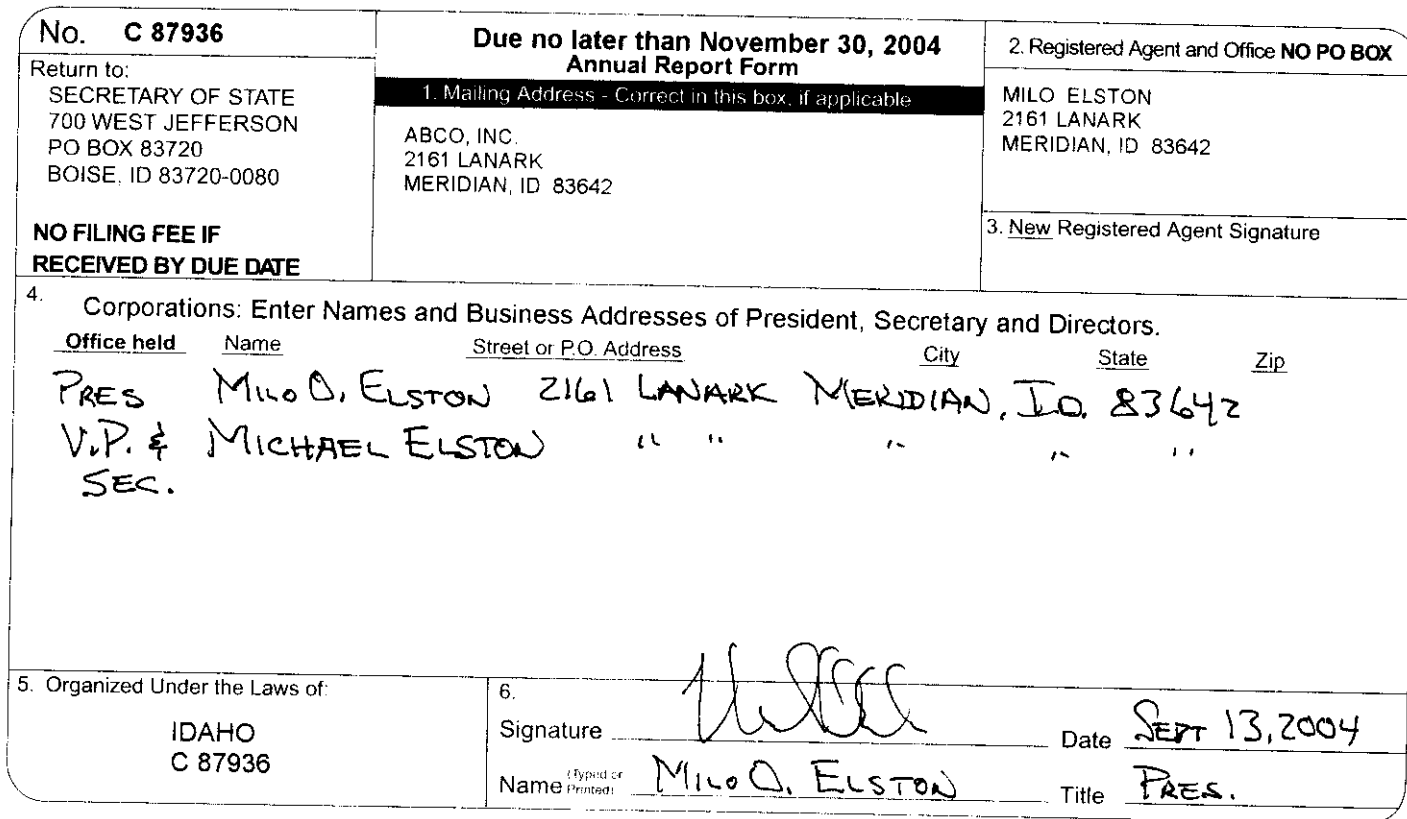 No. C 87936
Return to:
SECRETARY OF STATE
700 WEST JEFFERSON
PO BOX 83720
BOISE, ID 83720-0080
NO FILING FEE IF
RECEIVED BY DUE DATE
Due no later than November 30, 2004
Annual Report Form
1. Mailing Address - Correct in this box, if applicable
ABCO, INC.
2161 LANARK
MERIDIAN, ID 83642
2. Registered Agent and Office NO PO BOX
MILO ELSTON
2161 LANARK
MERIDIAN, ID 83642
3. New Registered Agent Signature
4. Corporations: Enter Names and Business Addresses of President, Secretary and Directors.
Office held Name Street or P.O. Address City State Zip
PRES MILO O. ELSTON 2161 LANARK MERIDIAN, ID. 83642
V.P. & MICHAEL ELSTON " " " " "
SEC.
5. Organized Under the Laws of:
IDAHO
C 87936
6.
Signature Date SEPT 13, 2004
Name (Typed or Printed) MILO O. ELSTON Title PRES.